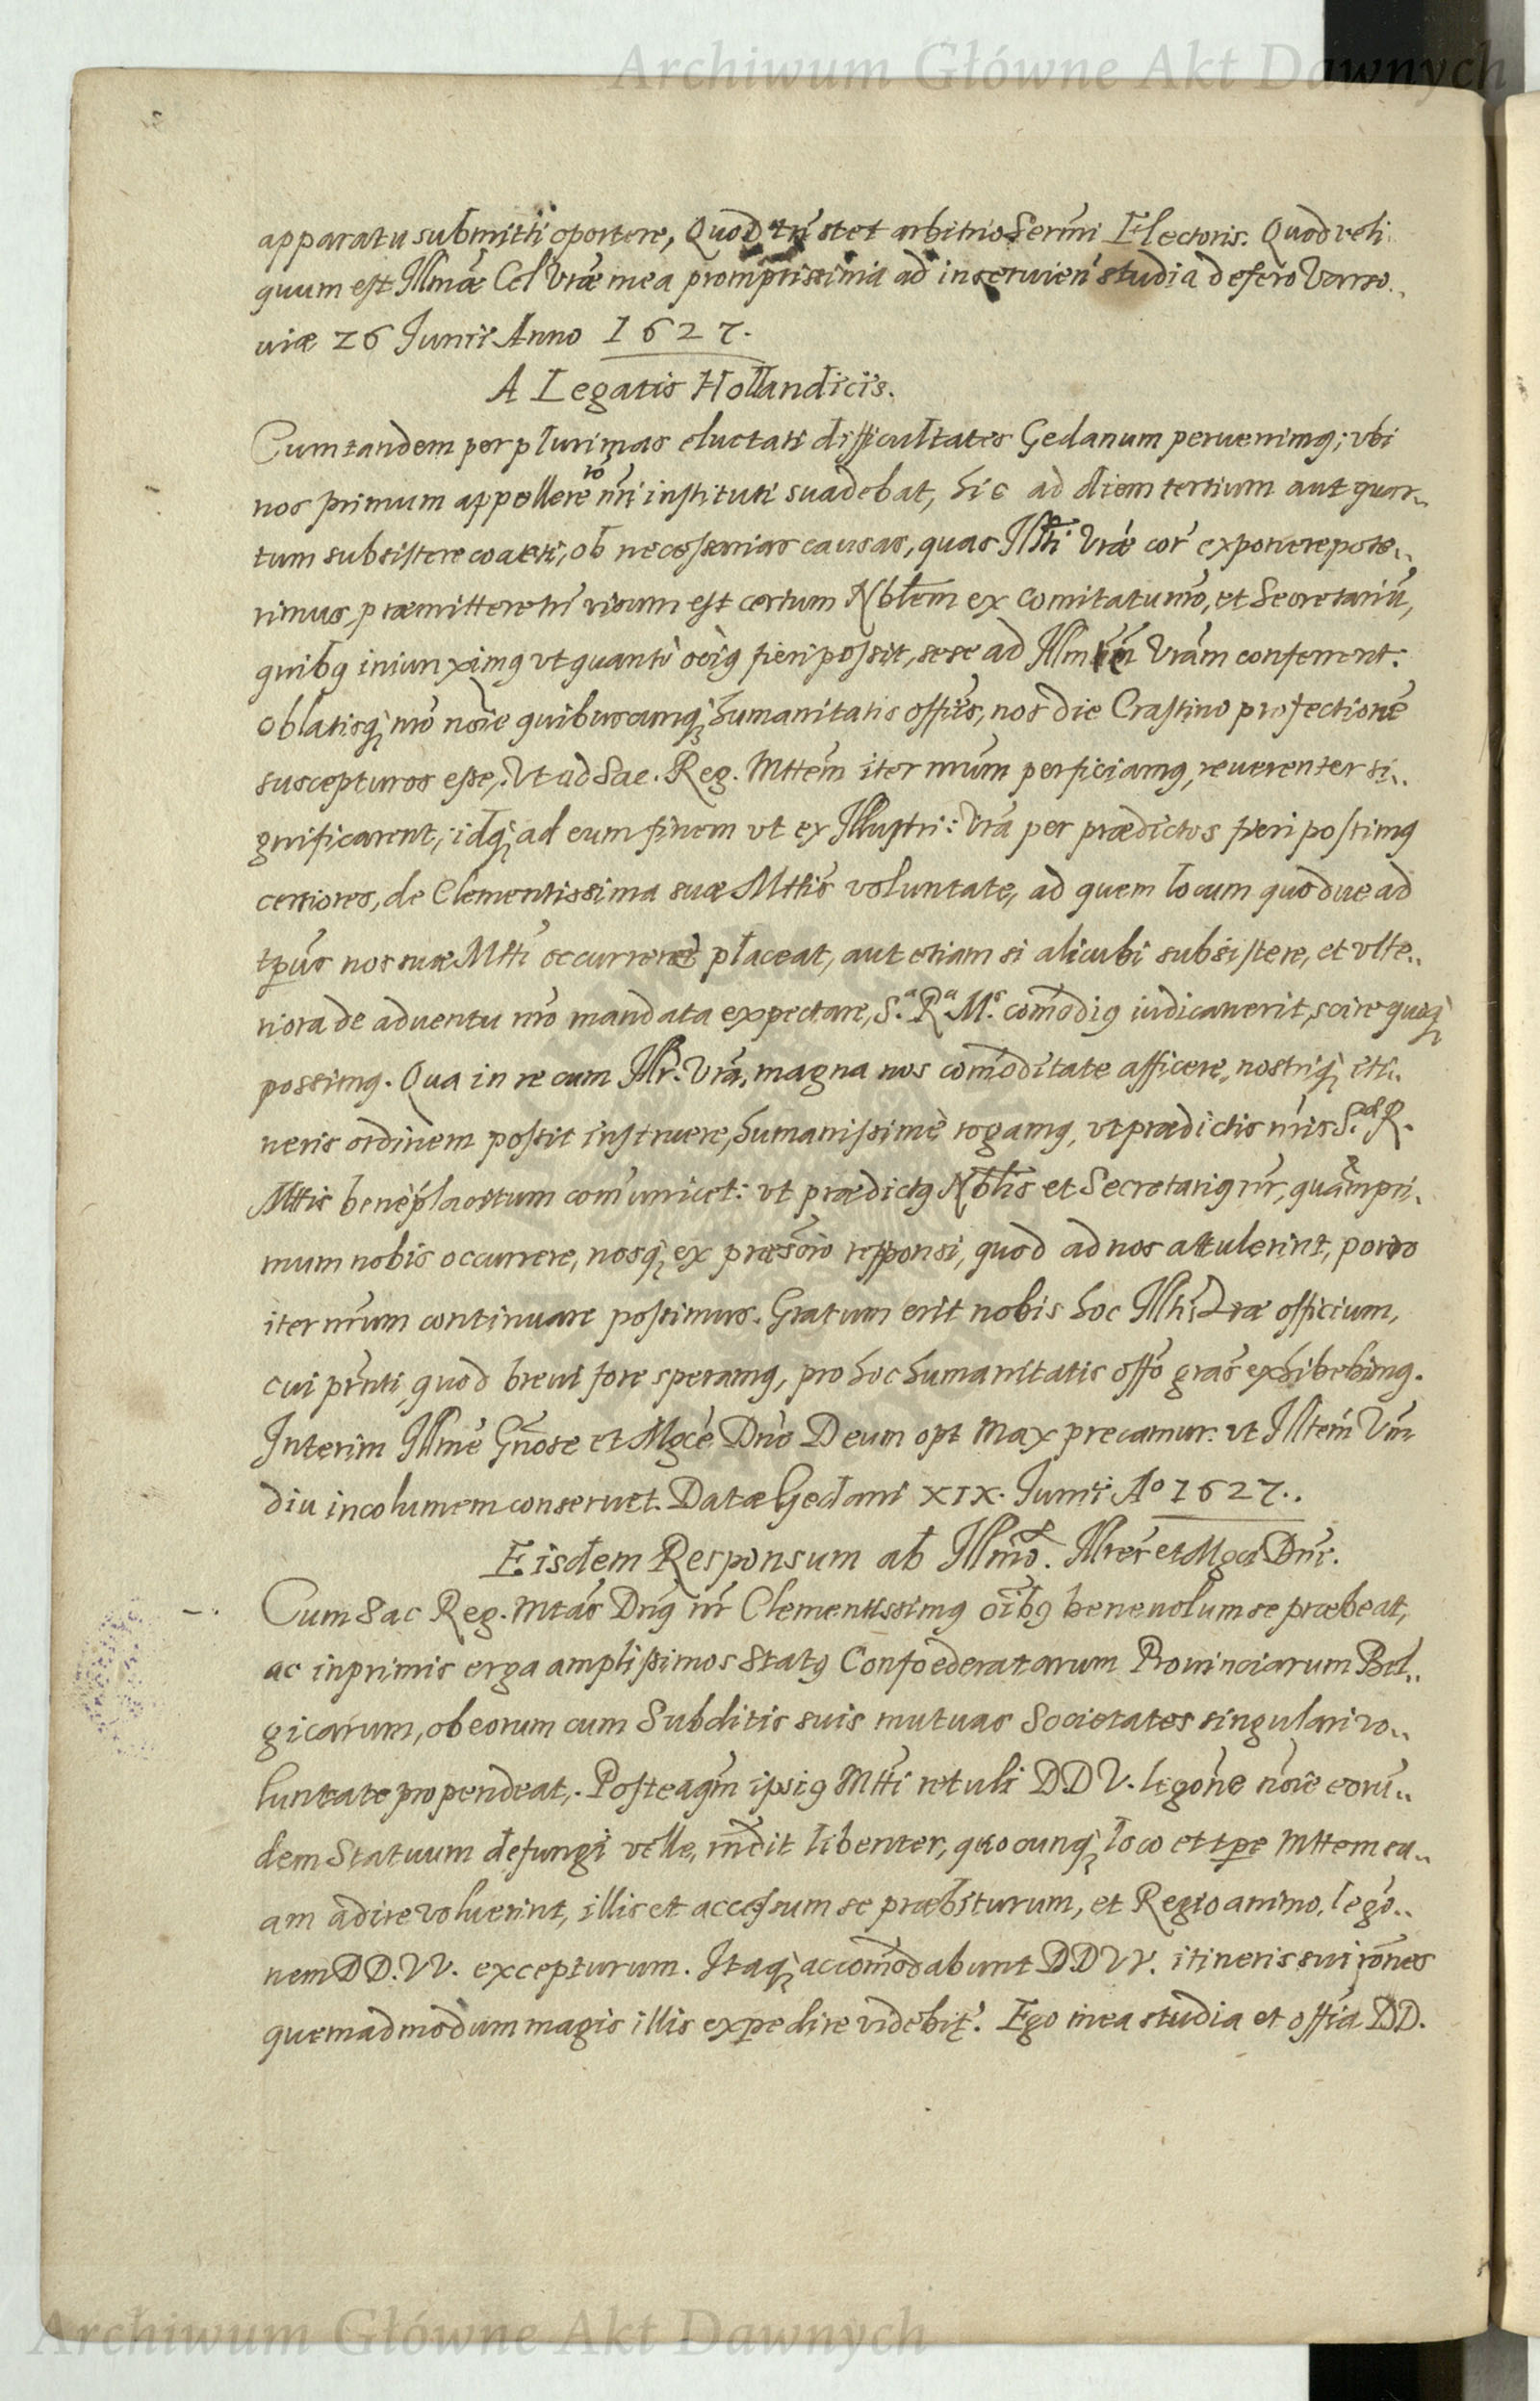 Archiwum Główne Akt Dawnych
apparatu submitti oportere, Quod tñ stet arbitrio Sermi Electoris. Quod reli
quum est Illmæ Cel Vræ mea promptissima ad inseruien studia defero Varso..
uiæ 26 Junii Anno 1627.
A Legatis Hollandicis.
Cum tandem per plurimas eluctati difficultates Gedanum peruenimq; vbi
nos primum appellere ro nri instituti suadebat, hic ad diem tertium aut quar..
tum subsistere coacti, ob necessarias causas, quas Illti Vræ cor exponere pote..
rimus, præmittere tñ visum est certum Nblem ex Comitatu nro, et Secretariũ,
quibq iniunximq vt quanti ocig fieri possit, sese ad Illm Vram conferrent:
oblatisq nro noie quibuscunq humanitatis offiis, nos die Crastino profectionẽ
suscepturos esse, Vt ad Sac. Reg. Mttem iter nrum perficiamq, reuerenter si..
gnificarent, idq ad eum finem vt ex Illustri: Vra per prædictos fieri possimq
certiores, de Clementissima suæ Mttis voluntate, ad quem locum quodue ad
tpus nos suæ Mtti occurrere placeat, aut etiam si alicubi subsistere, et vlte..
riora de aduentu nro mandata expectare, S.a Ra Ms. comodiq iudicauerit, scire quoq
possimq. Qua in re cum Illr. Vra, magna nos comoditate afficere, nostriq iti..
neris ordinem possit instruere, humanissimè rogamq, vt prædictis nris S.æ R.
Mttis benèplacitum comunicet: vt prædictq Nblis et Secretariq nr, quampri..
mum nobis occurrere, nosq ex præscrio responsi, quod ad nos attulerint, porro
iter nrum continuare possimus. Gratum erit nobis hoc Illti Vræ officium,
cui prnti, quod breui fore speramq, pro hoc humanitatis offo gras exhibebimq.
Interim Illme Gnose et Mgce Dne Deum opt Max precamur. vt Illtem Vm
diu incolumem conseruet. Datæ Gedani XIX. Junii Ao 1627..
Eisdem Responsum ab Illmo. Illres et Mgci Dni.
Cum Sac Reg. Mtas Dnq nr Clementissimq oibq beneuolum se præbeat,
ac inprimis erga amplissimos Statq Confoederatarum Prouinciarum Bel..
gicarum, ob eorum cum Subditis suis mutuas Societates singulari vo..
luntate propendeat,. Posteaqm ipsiq Mtti retuli DDV. legone noie eorũ..
dem Statuum defungi velle, mdit libenter, quocunq loco et tpe Mttem ea..
am adire voluerint, illis et accessum se præbiturum, et Regio animo. lego..
nem DD.VV. excepturum. Itaq accomodabunt DDVV. itineris sui rones
quemadmodum magis illis expedire videbit. Ego mea studia et offia DD.
Archiwum Główne Akt Dawnych